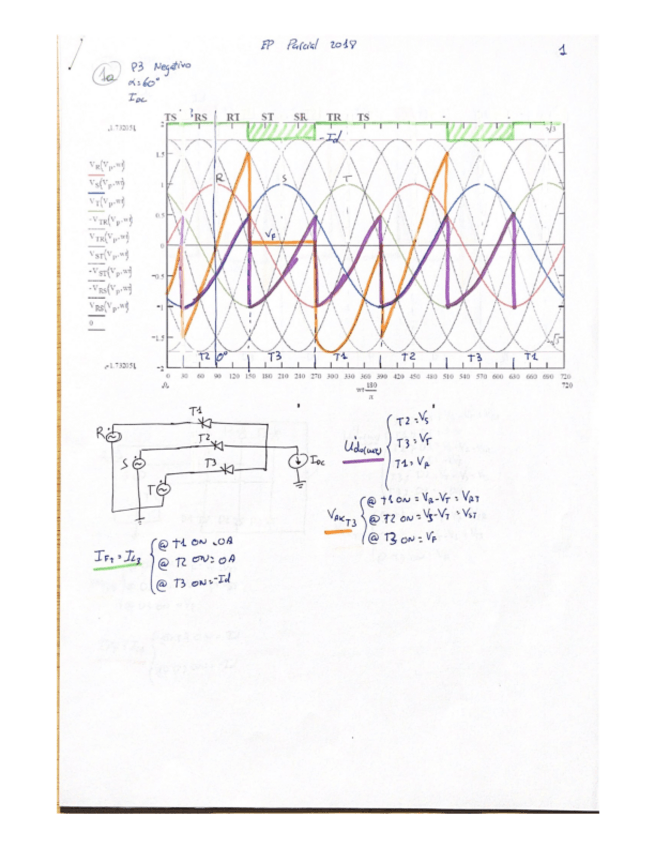 EP Parcial 2018
1
1a
P3 Negativo
α=60°
I_DC
TS RS RT ST SR TR TS
1.732051
√3
-Id
R S T
V_R(V_p,wt)
V_S(V_p,wt)
V_T(V_p,wt)
-V_TR(V_p,wt)
V_TR(V_p,wt)
V_ST(V_p,wt)
-V_ST(V_p,wt)
-V_RS(V_p,wt)
V_RS(V_p,wt)
0
1.5
1
0.5
0
-0.5
-1
-1.5
-2
V_F
-√3
-1.732051
T2 0° T3 T1 T2 T3 T1
0 30 60 90 120 150 180 210 240 270 300 330 360 390 420 450 480 510 540 570 600 630 660 690 720
wt 180/π
720
T1
R
T2
S
I_DC
T3
T
Udα(wt)
T2=V_S
T3=V_T
T1=V_R
V_AK T3
@ T1 ON = V_R-V_T = V_RT
@ T2 ON = V_S-V_T = V_ST
@ T3 ON = V_F
@ T1 ON = 0A
@ T2 ON = 0A
@ T3 ON = -Id